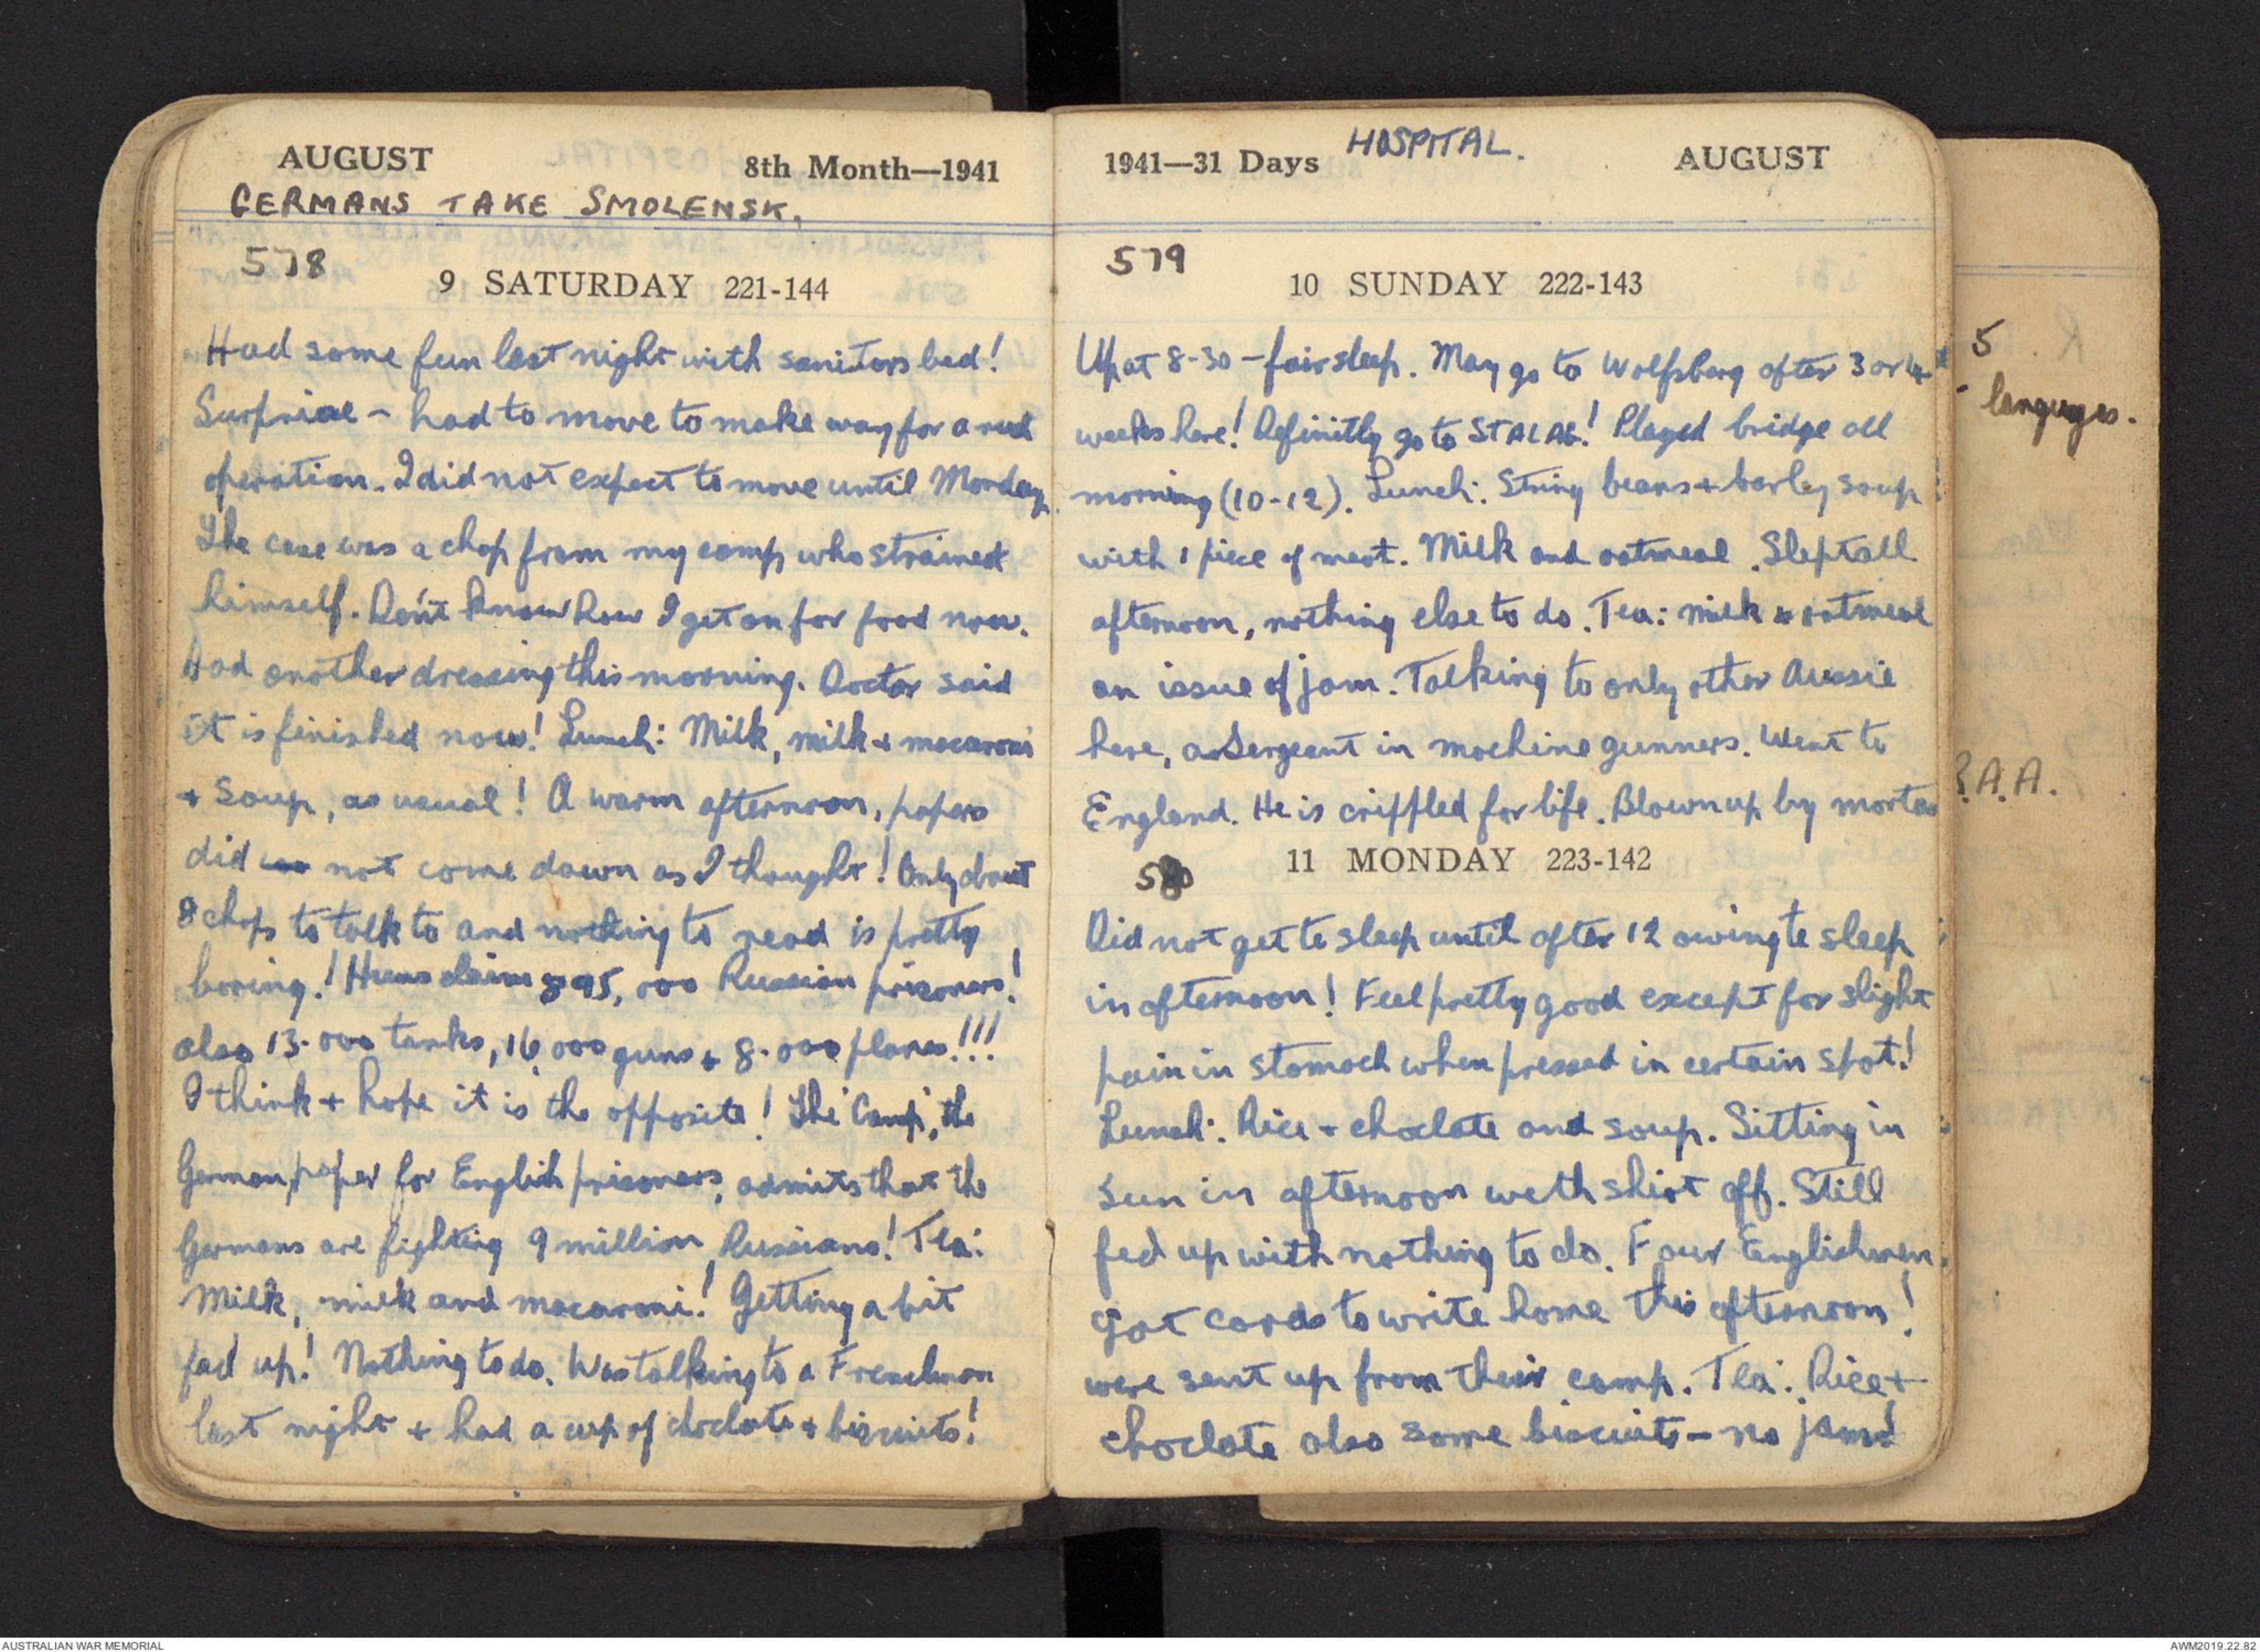 AUGUST 8th Month—1941
GERMANS TAKE SMOLENSK.
578
9 SATURDAY 221-144
Had some fun last night with sanitors bed!
Surprise - had to move to make way for a
operation. I did not expect to move until Monday.
The case was a chap from my camp who strained
himself. Don't know how I get on for food now.
Had another dressing this morning. Doctor said
it is finished now! Lunch: Milk, milk + macaroni
+ soup, as usual! A warm afternoon, papers
did not come down as I thought! Only about
8 chaps to talk to and nothing to read is pretty
boring! Huns claim 895,000 Russian prisoners!
also 13.000 tanks, 16,000 guns + 8.000 planes!!!
I think + hope it is the opposite! The 'Camp', the
German paper for English prisoners, admits that the
Germans are fighting 9 million Russians! Tea:
Milk, milk and macaroni! Getting a bit
fed up! Nothing to do. Was talking to a Frenchman
last night + had a cup of choclate + biscuits!
1941—31 Days HOSPITAL. AUGUST
579
10 SUNDAY 222-143
Up at 8-30 - fair sleep. May go to Wolfsberg after 3 or 4
weeks here! Definitly go to STALAG! Played bridge all
morning (10-12). Lunch: String beans + barley soup
with 1 piece of meat. Milk and oatmeal. Slept all
afternoon, nothing else to do. Tea: milk & oatmeal
an issue of jam. Talking to only other Aussie
here, a Sergeant in machine gunners. Went to
England. He is crippled for life. Blown up by mortar
580
11 MONDAY 223-142
Did not get to sleep until after 12 owing to sleep
in afternoon! Feel pretty good except for slight
pain in stomach when pressed in certain spot!
Lunch: Rice + choclate and soup. Sitting in
sun in afternoon with shirt off. Still
fed up with nothing to do. Four Englishmen
got cards to write home this afternoon!
were sent up from their camp. Tea: Rice +
choclate also some biscuits - no jam!
5
languages.
R.A.A.
AUSTRALIAN WAR MEMORIAL AWM2019.22.82